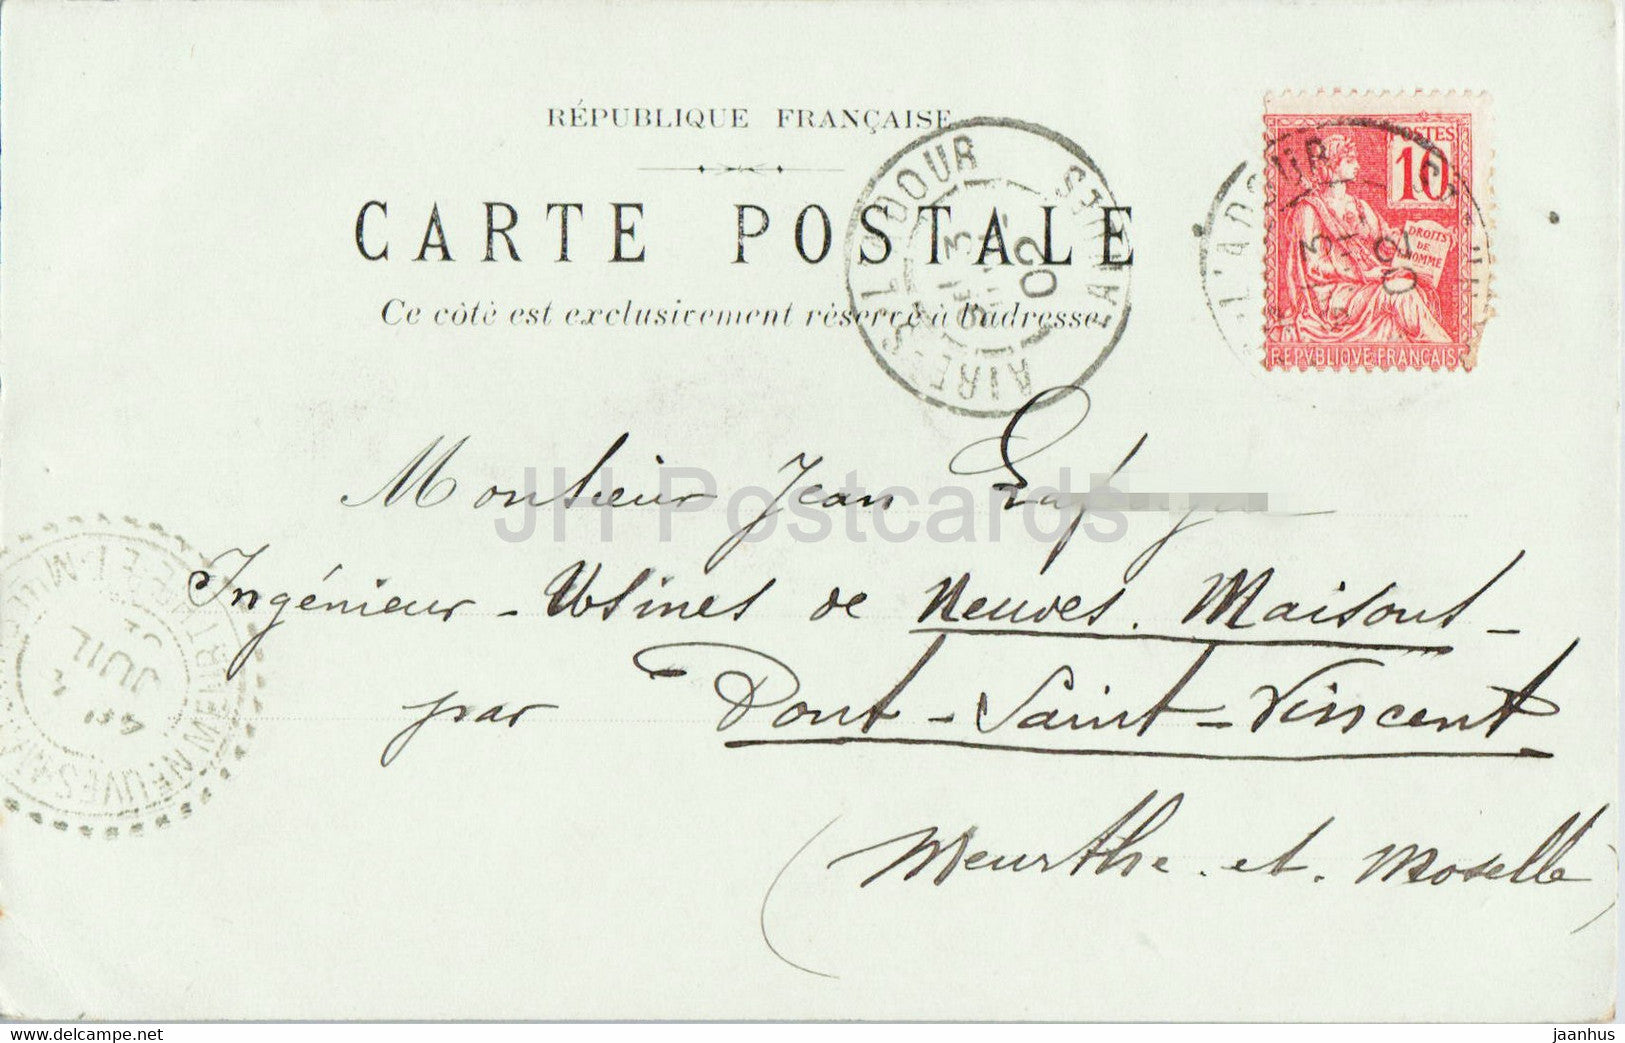 RÉPUBLIQUE FRANÇAISE
CARTE POSTALE
Ce côté est exclusivement réservé à l'adresse
POSTES
10
DROITS
DE
L'HOMME
REPVBLIQVE FRANÇAISE
AIRE-S-L'ADOUR
LANDES
3
02
L'ADOUR
3
02
Monsieur Jean
JH Postcards
Ingénieur - Usines de Neuves. Maisons -
par Pont - Saint - Vincent
(Meurthe. et. Moselle)
NEUVES-MAISONS
MEURTHE-ET-MOSELLE
JUIL
delcampe.net
jaanhus